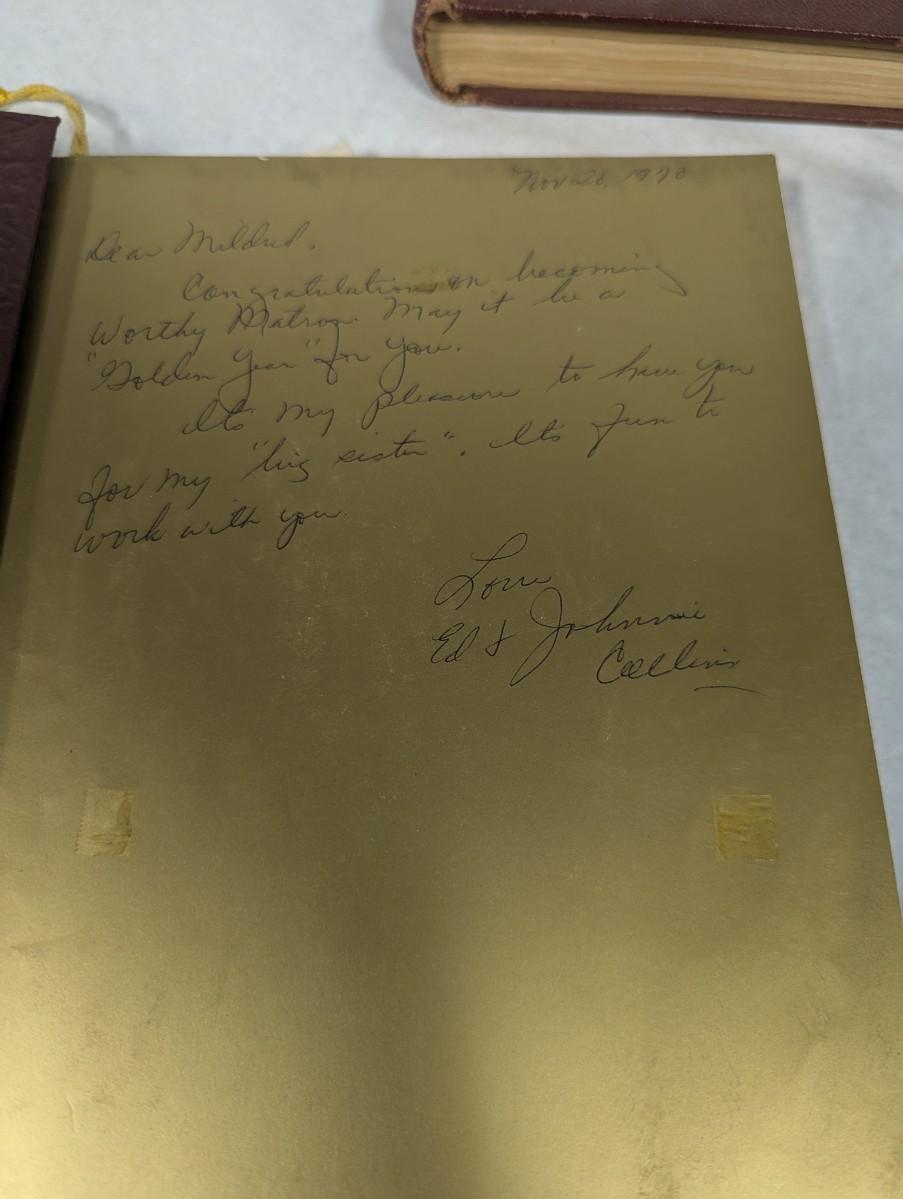 Nov 28, 1970
Dear Mildred,
Congratulations on becoming
Worthy Matron. May it be a
"Golden Year" for you.
It's my pleasure to have you
for my "big sister". It's fun to
work with you.
Love
Ed & Johnnie
Collins